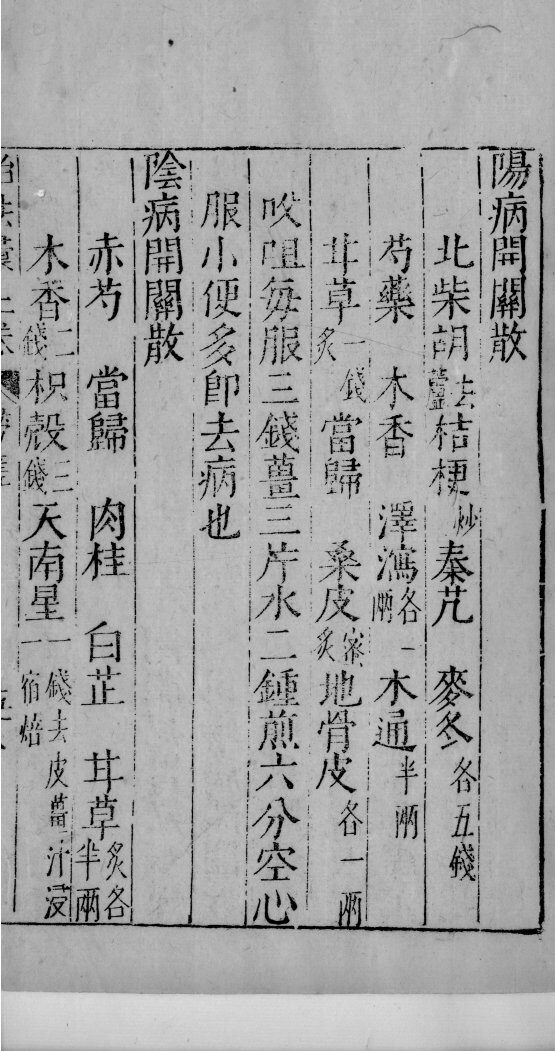 陽病開關散
北柴胡去蘆桔梗炒秦艽 麥冬各五錢
芍藥 木香 澤瀉各一兩木通半兩
甘草一錢炙當歸 桑皮蜜炙地骨皮各一兩
㕮咀每服三錢薑三片水二鍾煎六分空心
服小便多即去病也
陰病開關散
赤芍 當歸 肉桂 白芷 甘草炙各半兩
木香二錢枳殼三錢天南星一錢去皮薑汁浸一宿焙